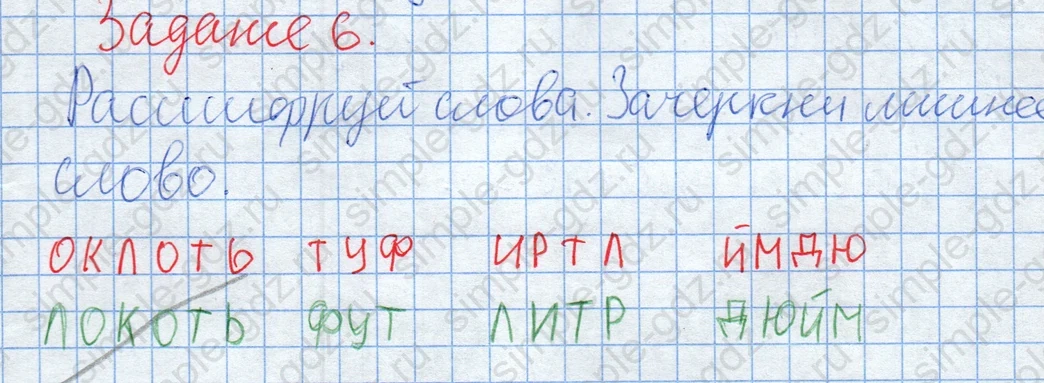 Задание 6.
Расшифруй слова. Зачеркни лишнее
слово.
ОКЛОТЬ ТУФ ИРТЛ ЙМДЮ
ЛОКОТЬ ФУТ ЛИТР ДЮЙМ
simple-gdz.ru